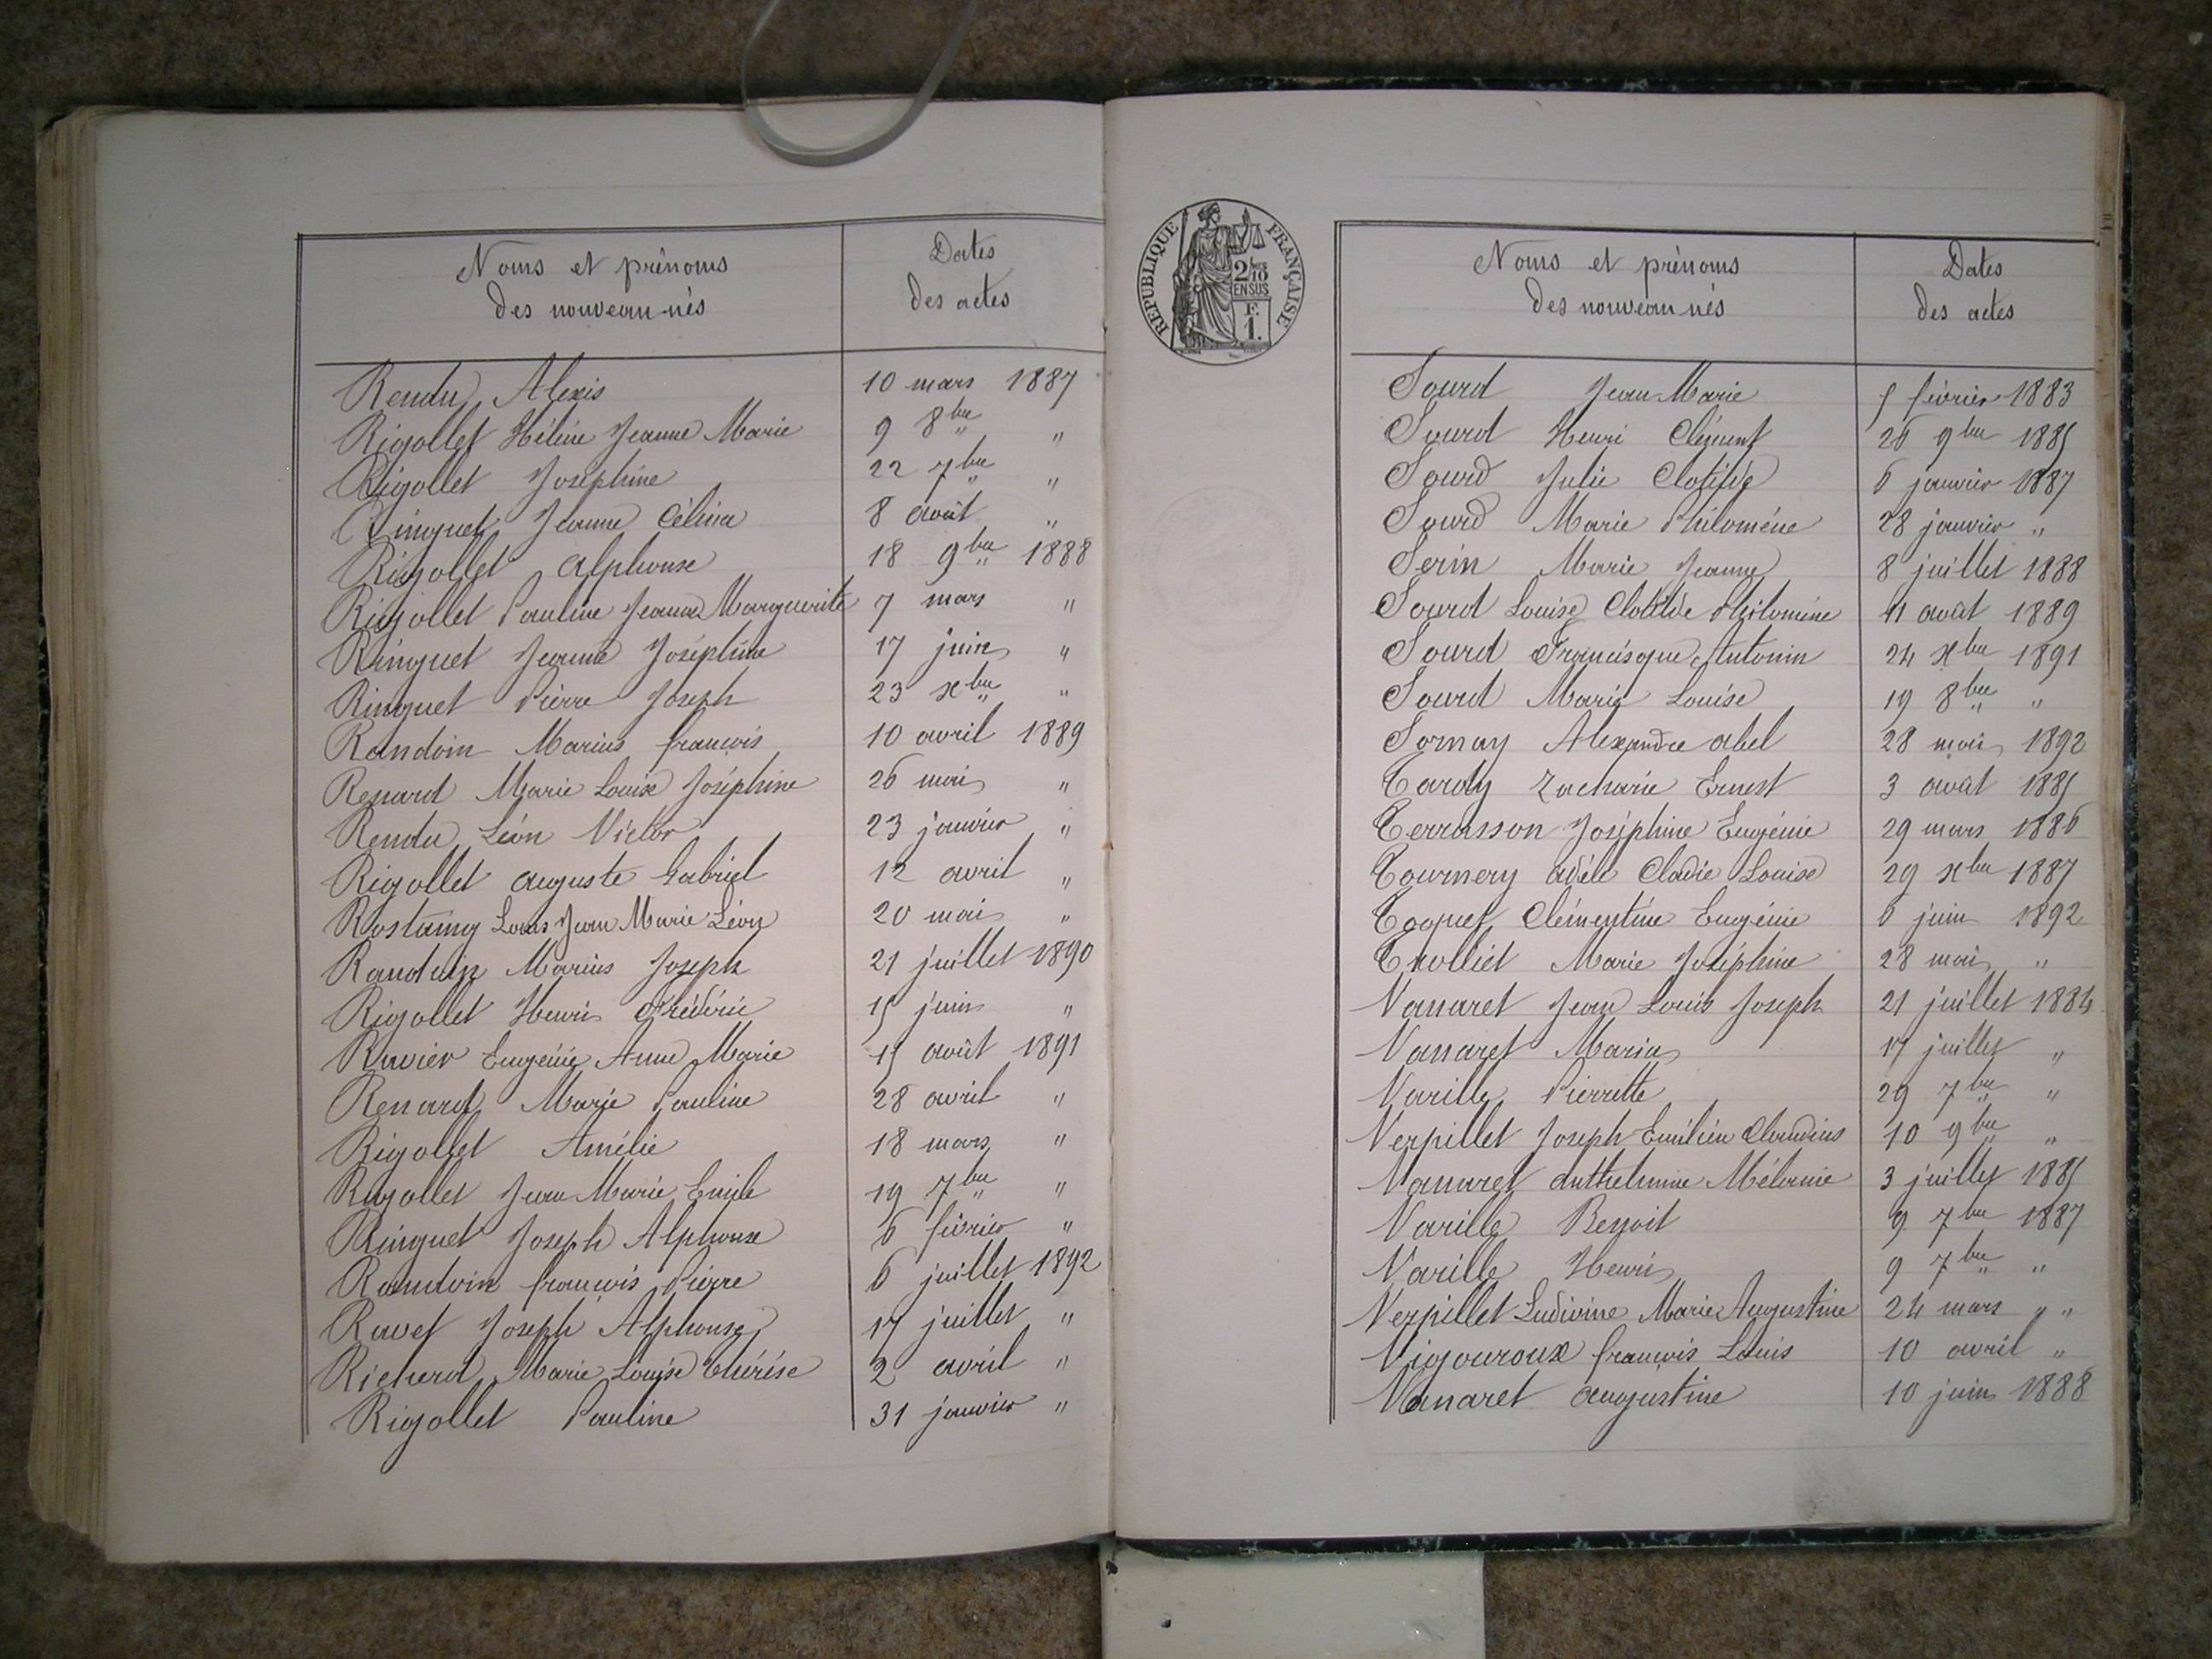 Noms et prénoms
des nouveau-nés
Dates
des actes
Rendu Alexis 10 mars 1887
Rigollet Hélène Jeanne Marie 9 8bre "
Rigollet Joséphine 22 7bre "
Ringuet Jeanne Célina 8 août "
Rigollet Alphonse 18 9bre 1888
Rigollet Pauline Jeanne Marguerite 7 mars "
Ringuet Jeanne Joséphine 17 juin "
Ringuet Pierre Joseph 23 xbre "
Randoin Marius françois 10 avril 1889
Renard Marie Louise Joséphine 26 mai "
Rendu Léon Victor 23 janvier "
Rigollet Auguste Gabriel 12 avril "
Rostaing Louis Jean Marie Léon 20 mai "
Randoin Marius Joseph 21 juillet 1890
Rigollet Henri Frédéric 15 juin "
Ravier Eugénie Anne Marie 15 août 1891
Renard Marie Pauline 28 avril "
Rigollet Amélie 18 mars "
Rigollet Jean Marie Emile 19 7bre "
Ringuet Joseph Alphonse 6 février "
Randoin françois Pierre 6 juillet 1892
Ravet Joseph Alphonse 17 juillet "
Richerd Marie Louise Thérèse 2 avril "
Rigollet Pauline 31 janvier "
REPUBLIQUE FRANÇAISE
2/10
EN SUS
F.
1.
Noms et prénoms
des nouveau-nés
Dates
des actes
Sourd Jean Marie 5 février 1883
Sourd Henri Clément 26 9bre 1885
Sourd Julie Clotilde 6 janvier 1887
Sourd Marie Philomène 28 janvier "
Serin Marie Jeanne 8 juillet 1888
Sourd Louise Clotilde Philomène 11 août 1889
Sourd Francisque Antonin 24 xbre 1891
Sourd Marie Louise 19 8bre "
Sornay Alexandre abel 28 mai 1892
Tardy Zacharie Ernest 3 août 1885
Terrasson Joséphine Eugénie 29 mars 1886
Tournery Adèle Cladie Louise 29 xbre 1887
Toquet Clémentine Eugénie 6 juin 1892
Trolliet Marie Joséphine 28 mai "
Vanaret Jean Louis Joseph 21 juillet 1884
Vanaret Maria 17 juillet "
Varille Pierrette 29 7bre "
Verpillet Joseph Emilien Claudius 10 9bre "
Vanaret Anthelmine Mélanie 3 juillet 1885
Varille Benoit 9 7bre 1887
Varille Henri 9 7bre "
Verpillet Ludivine Marie Augustine 24 mars " "
Vigouroux françois Louis 10 avril "
Vanaret Augustine 10 juin 1888